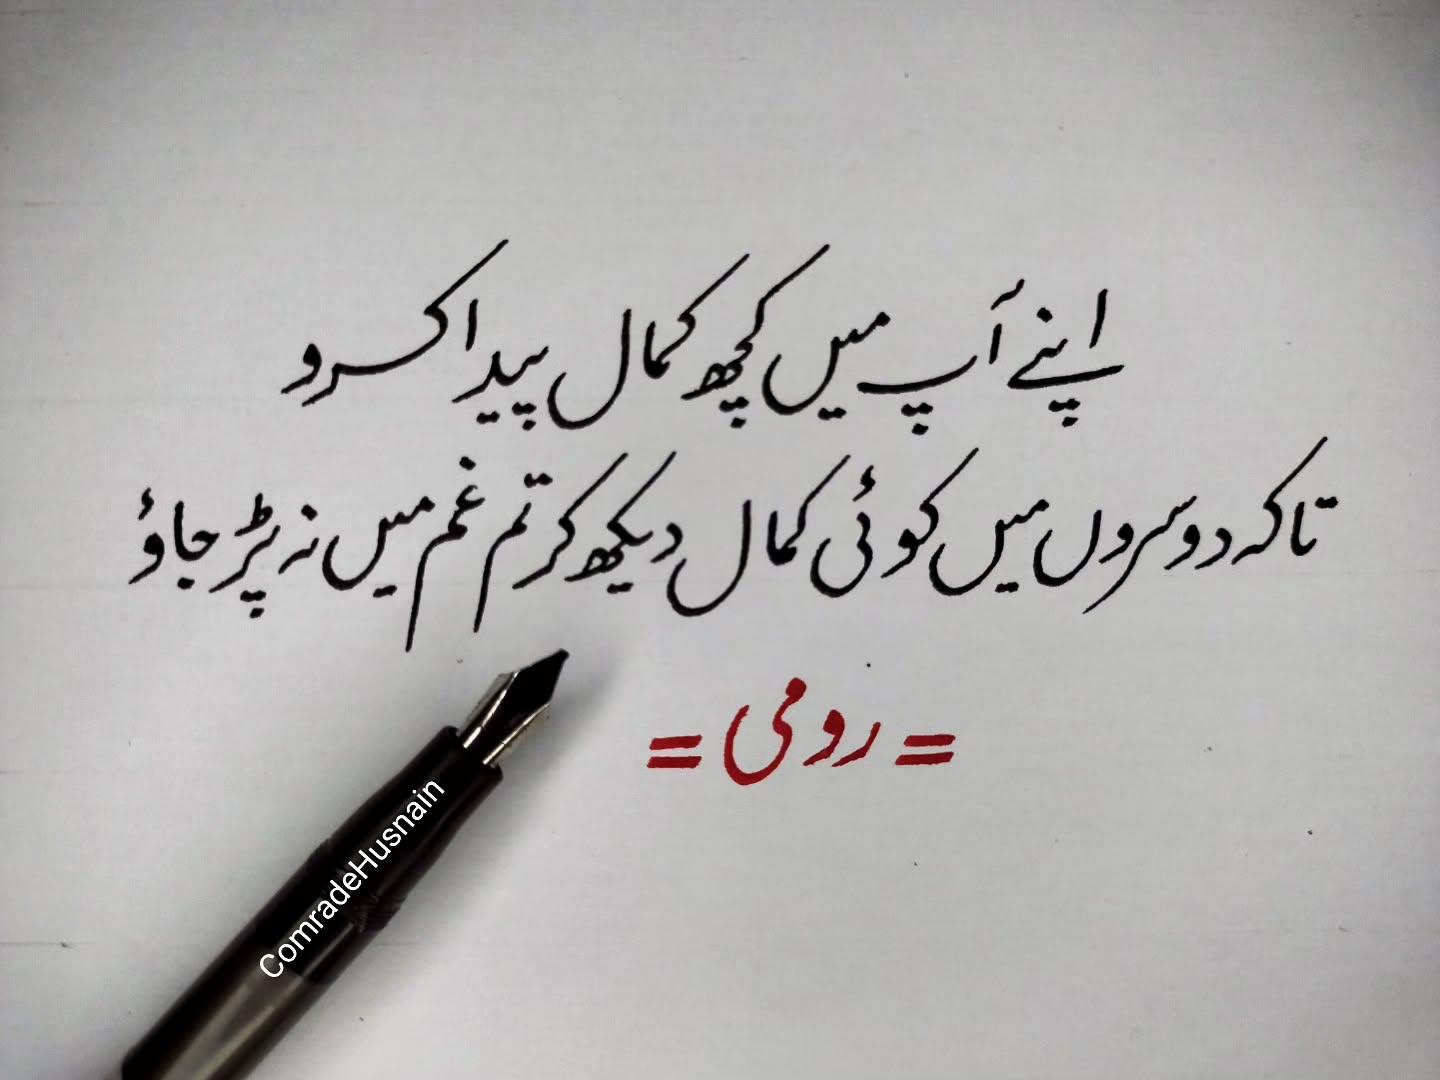 اپنے آپ میں کچھ کمال پیدا کرو
تاکہ دوسروں میں کوئی کمال دیکھ کر تم غم میں نہ پڑ جاؤ
= رومی =
ComradeHusnain